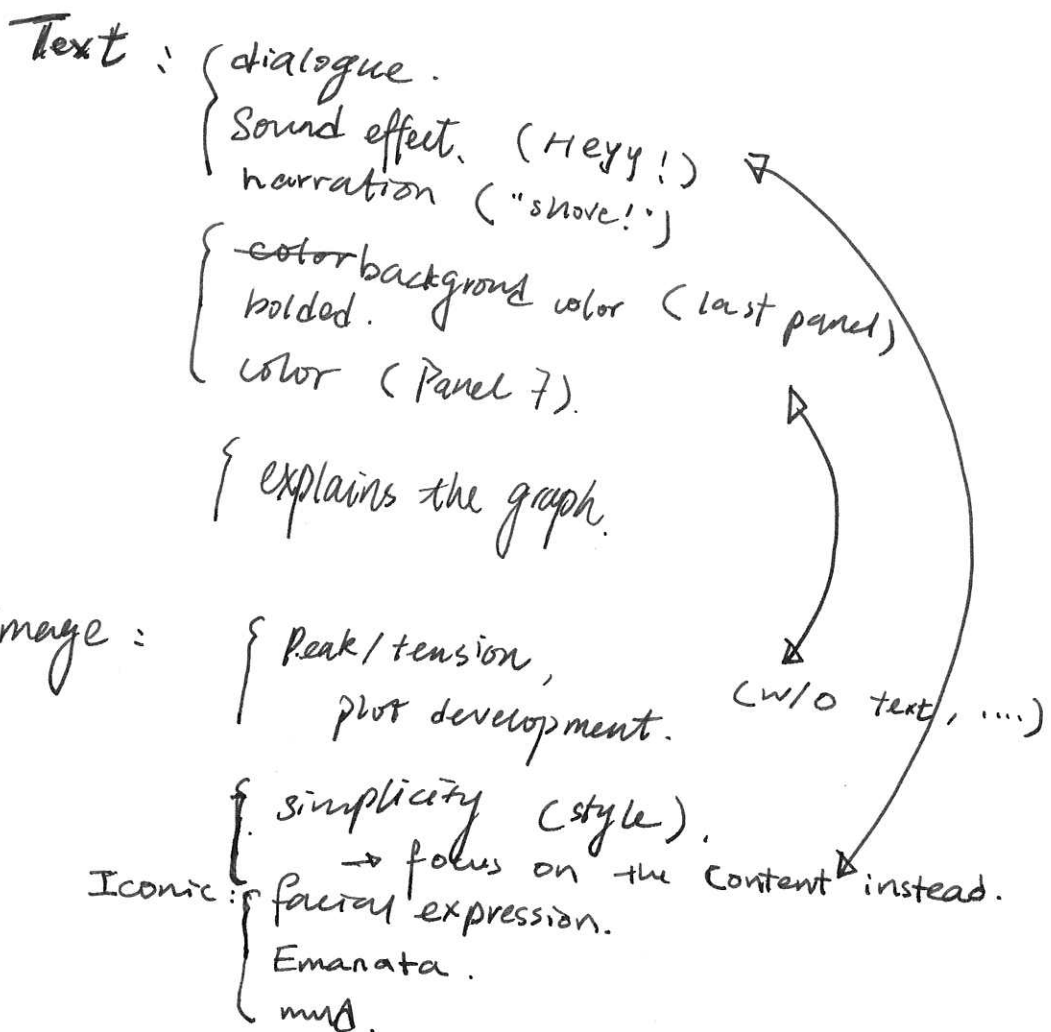 Text :
dialogue.
Sound effect. (Heyy!)
narration ("shove!")
color backgrond color (last panel)
bolded.
color (Panel 7).
explains the graph.
mage :
Peak/tension,
plot development.
(w/o text, ....)
simplicity (style).
→ focus on the content instead.
Iconic : facial expression.
Emanata.
mud.